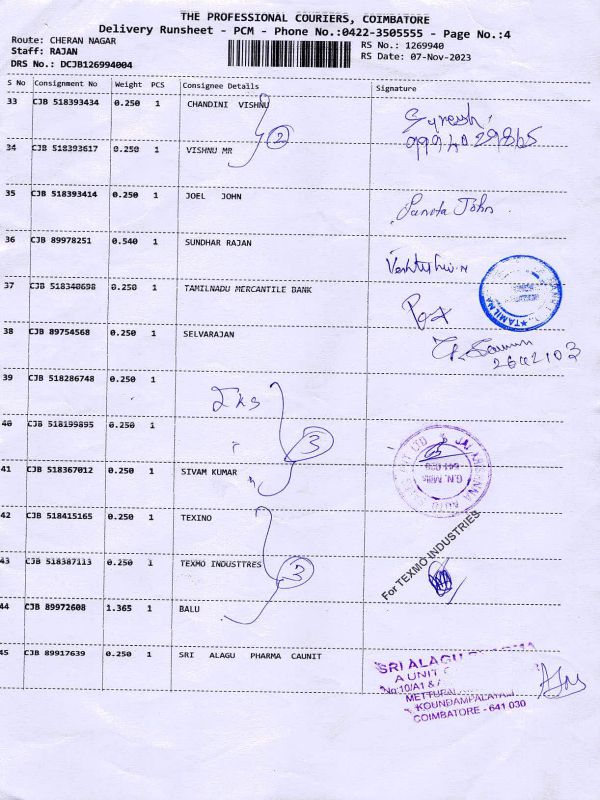 THE PROFESSIONAL COURIERS, COIMBATORE
Delivery Runsheet - PCM - Phone No.:0422-3505555 - Page No.:4
Route: CHERAN NAGAR
Staff: RAJAN
DRS No.: DCJB126994004
RS No.: 1269940
RS Date: 07-Nov-2023
S No Consignment No Weight PCS Consignee Details Signature
33 CJB 518393434 0.250 1 CHANDINI VISHNU
Suresh
99940 29865
2
34 CJB 518393617 0.250 1 VISHNU MR
35 CJB 518393414 0.250 1 JOEL JOHN
John
36 CJB 89978251 0.540 1 SUNDHAR RAJAN
37 CJB 518340698 0.250 1 TAMILNADU MERCANTILE BANK
38 CJB 89754568 0.250 1 SELVARAJAN
39 CJB 518286748 0.250 1
40 CJB 518199895 0.250 1
3
41 CJB 518367012 0.250 1 SIVAM KUMAR
G.N. Mills
641 029
42 CJB 518415165 0.250 1 TEXINO
For TEXMO INDUSTRIES
43 CJB 518387113 0.250 1 TEXMO INDUSTTRES
3
44 CJB 89972608 1.365 1 BALU
45 CJB 89917639 0.250 1 SRI ALAGU PHARMA CAUNIT
SRI ALAGU
A UNIT
No:10/A1 &
KOUNDAMPALAYAM
COIMBATORE - 641 030